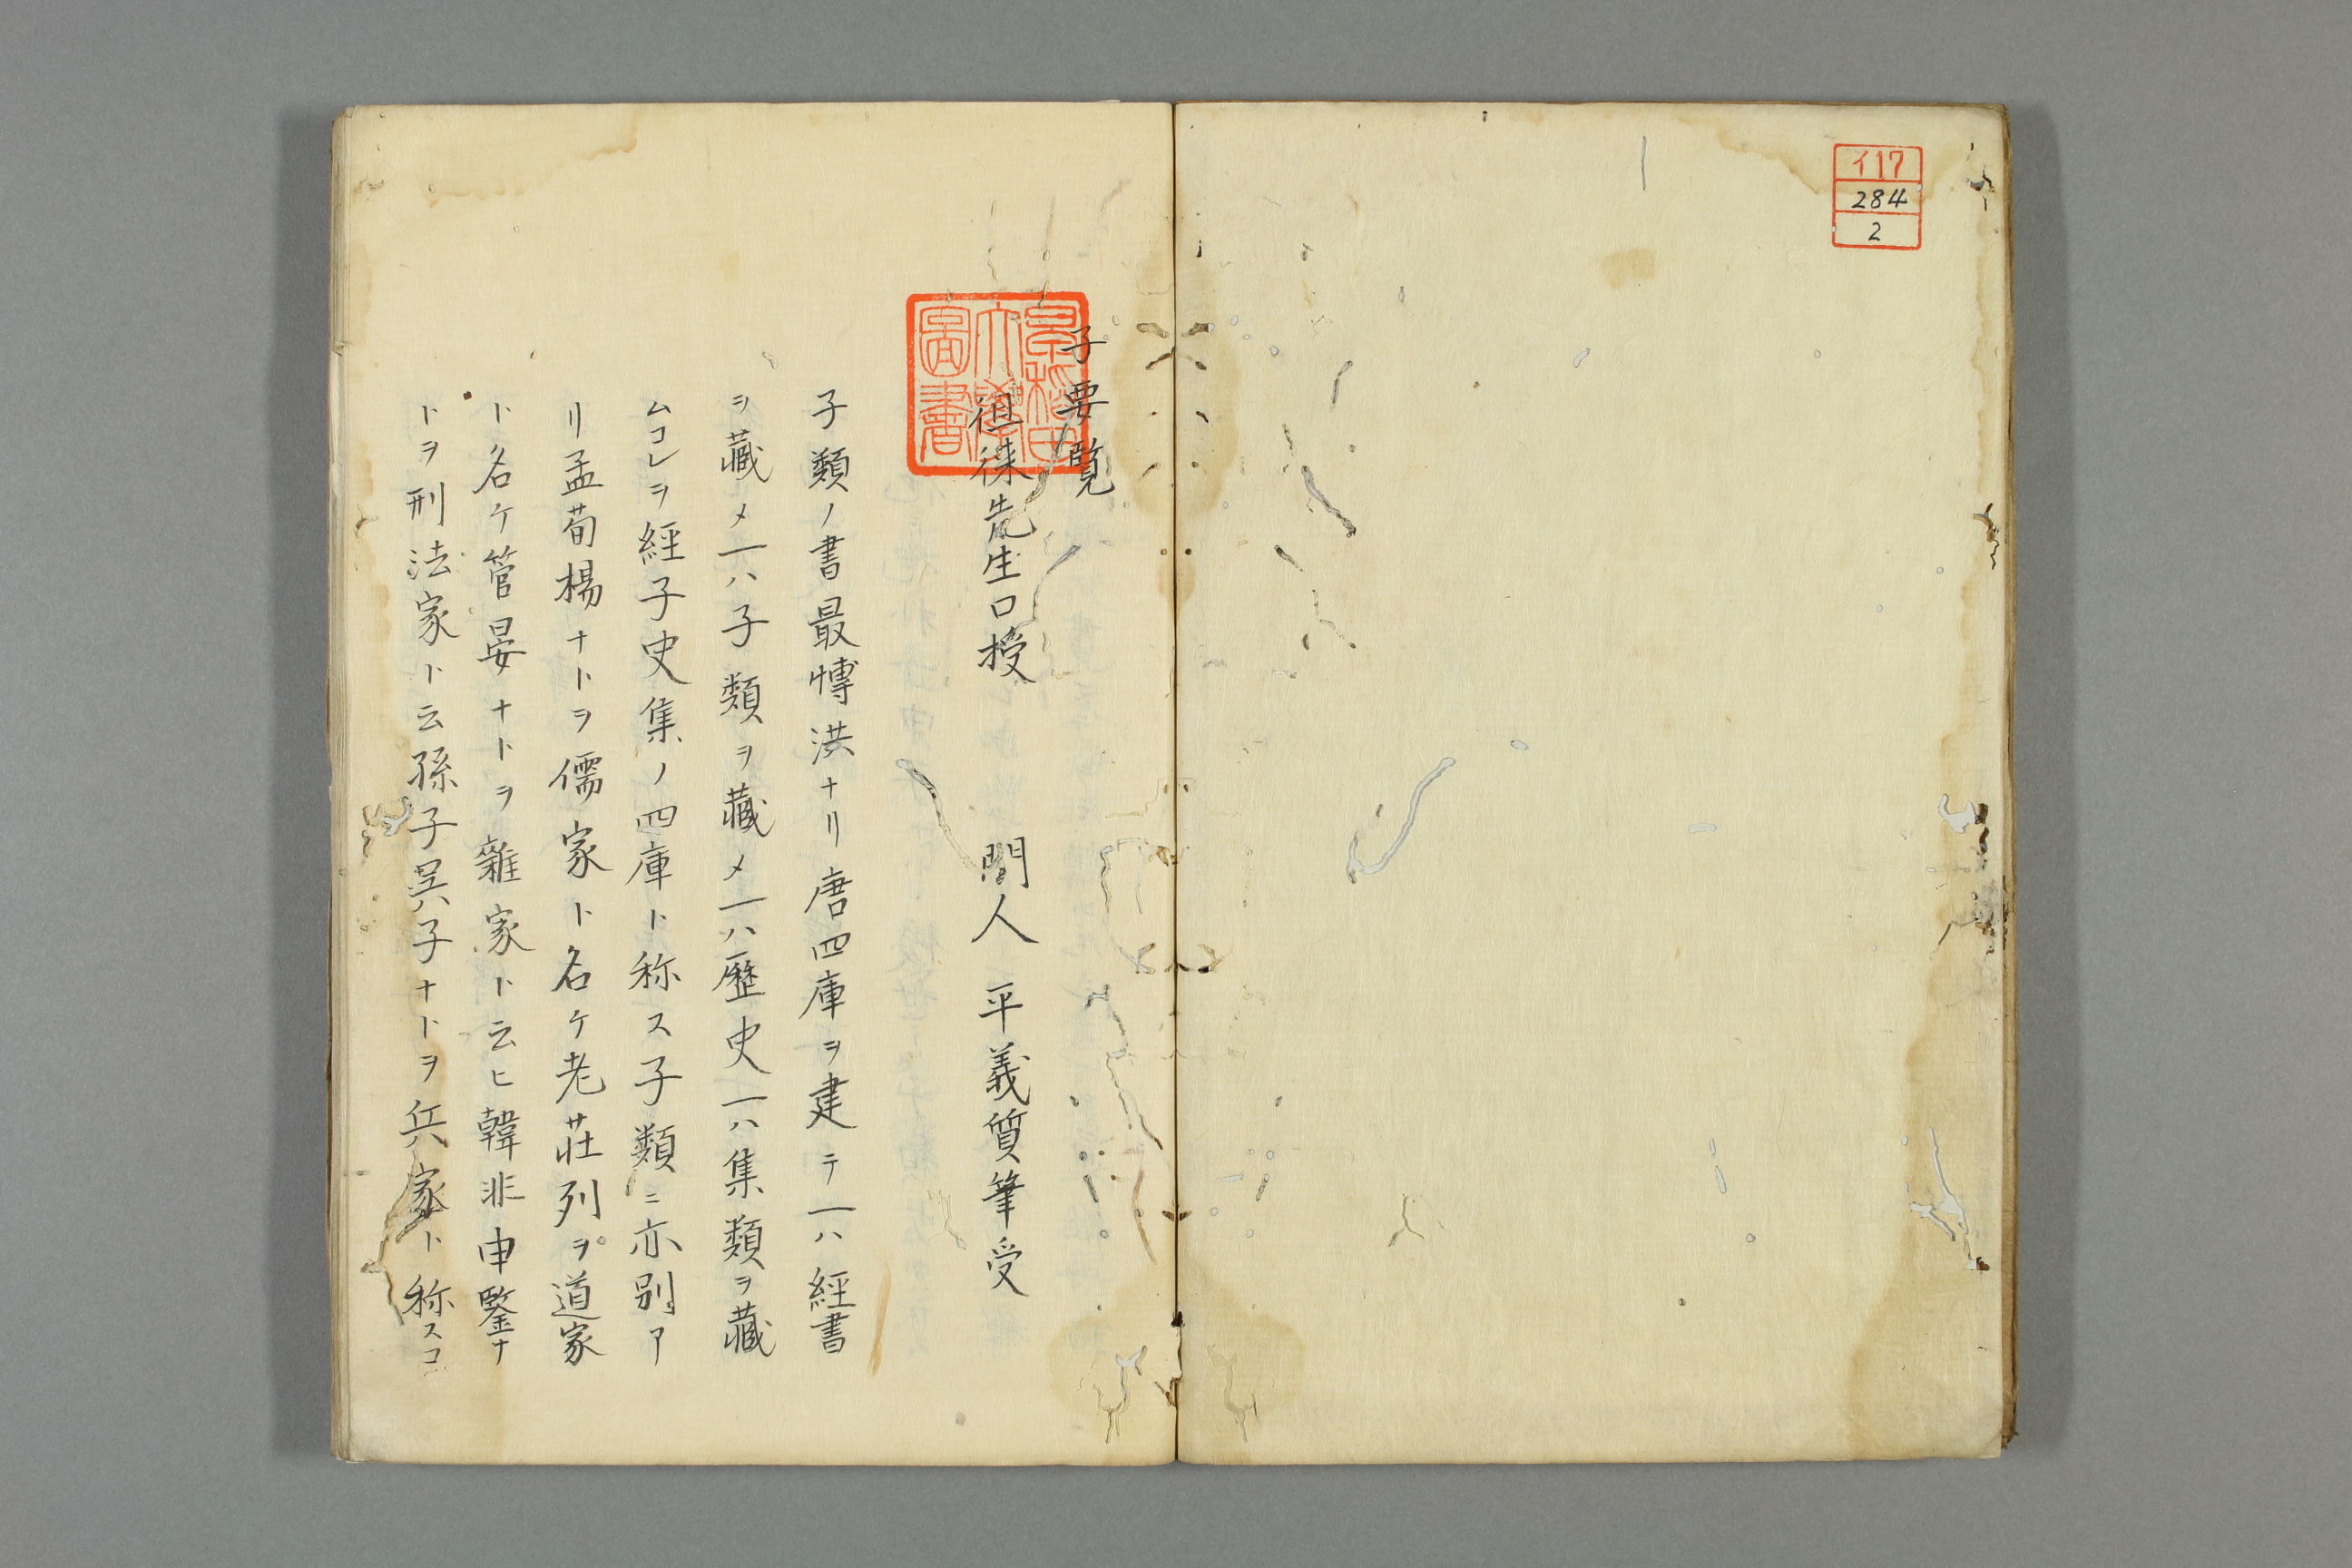 イ17
284
2
子要覧
徂徠先生口授 門人 平義質筆受
子類ノ書最博洪ナリ唐四庫ヲ建テ一ハ經書
ヲ藏メ一ハ子類ヲ藏メ一ハ歷史一ハ集類ヲ藏
ムコレヲ經子史集ノ四庫ト称ス子類ニ亦別ア
リ孟荀楊ナトヲ儒家ト名ケ老莊列ヲ道家
ト名ケ管晏ナトヲ雜家ト云ヒ韓非申鑒ナ
トヲ刑法家ト云孫子吳子ナトヲ兵家ト称スコ
早稲田大學圖書